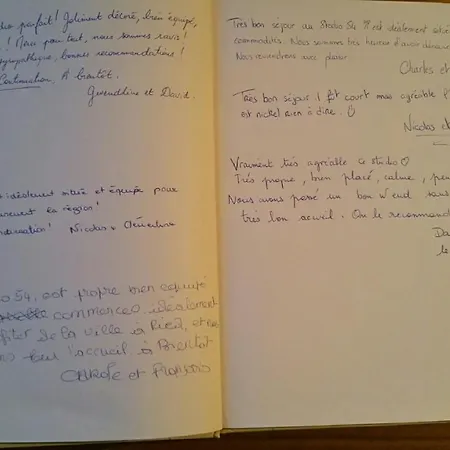 parfait! Joliment décoré, bien équipé,
! Merci pour tout, nous sommes ravis!
sympathique, bonnes recommandations!
Continuation. A bientôt.
Gwendoline et David.
idéalement situé et équipé pour
la région!
Nicolas & Clémentine
54, est propre bien équipé
commerces idéalement
de la ville à Pied, et
l'accueil à Bientot
CAROLE et François
Très bon séjour au Studio 54 !!! est idéalement
commodités. Nous sommes très heureux d'avoir
Nous reviendrons avec plaisir
Charles et
Très bon séjour! court mais agréable!
est nickel rien à dire.
Nicolas et
Vraiment très agréable ce studio
Très propre, bien placé, calme,
Nous avons passé un bon W'end
très bon accueil. On le recommande
Da
le